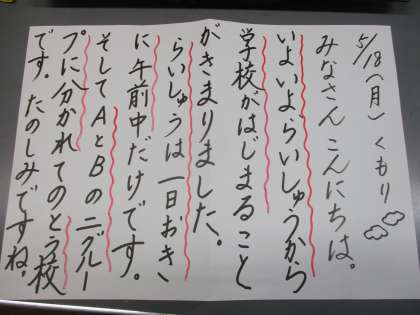 5/18(月)くもり
みなさん こんにちは。
いよいよらいしゅうから
学校がはじまること
がきまりました。
らいしゅうは一日おき、
に午前中だけです。
そしてAとBの二グルー
プに分かれてのとう校
です。たのしみですね。